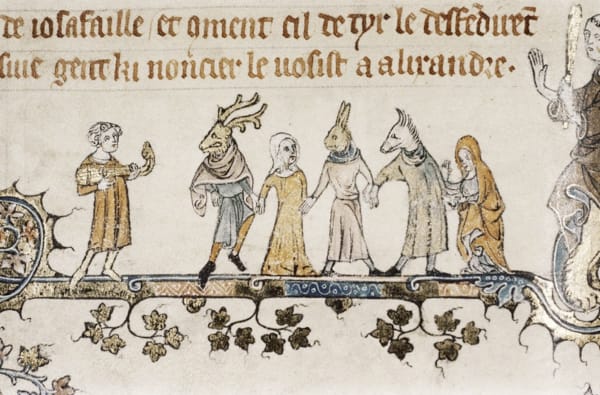 de iosafaille / et qment cil de tyr le deffēdirēt
siue gent ki noncier le uosist a alixandre.